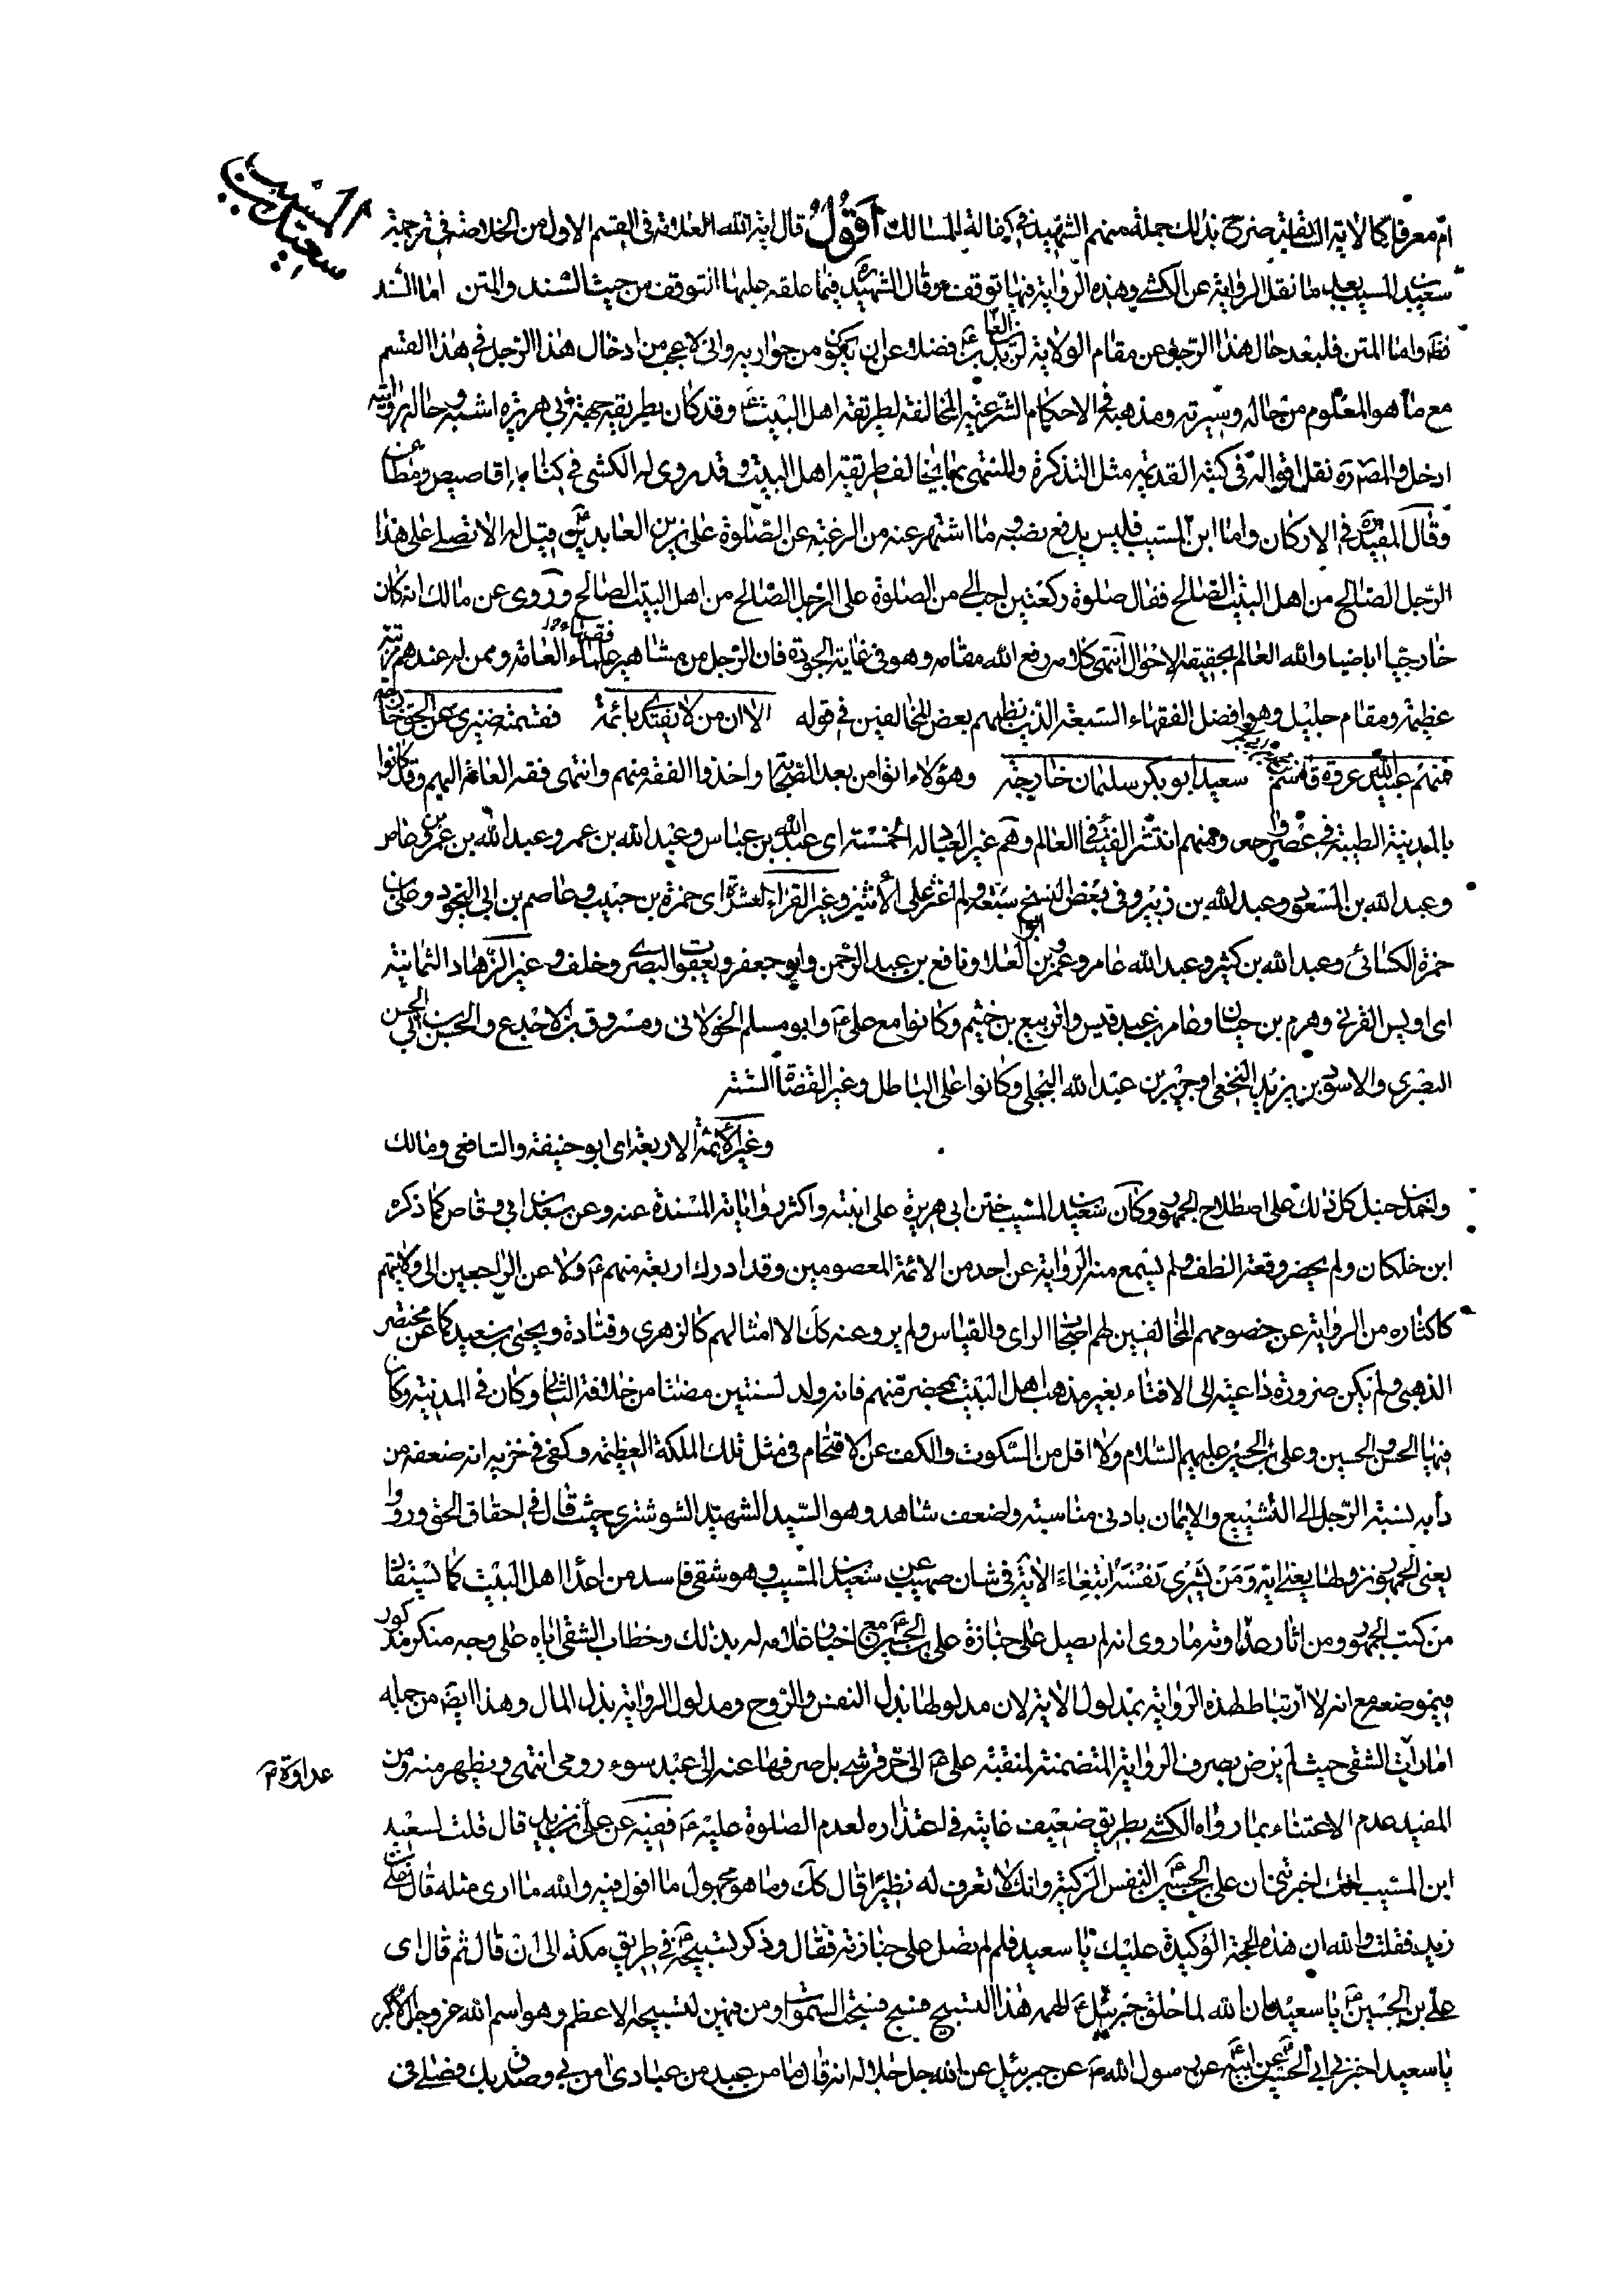 سعيد بن المسيب
ام معرفا كالاية السالفة صرح بذلك جملة منهم الشهيد في كفالة المسالك اقول قال اية الله العلامة في القسم الاول من الخلاصة في ترجمة
سعيد بن المسيب بعد ما نقل الرواية عن الكشي وهذه الرواية فيها توقف وقال الشهيد ره فيما علقه عليها التوقف من حيث السند والمتن اما السند
فظ واما المتن فلبعد حال هذا الرجل عن مقام الولاية لزين العابدين ع فضلا عن ان يكون من حواريه واني لاعجب من ادخال هذا الرجل في هذا القسم
مع ما هو المعلوم من حاله وسيرته ومذهبه في الاحكام الشرعية المخالفة لطريقة اهل البيت ع وقد كان بطريقة جهة ابي هريرة اشبه وحاله بروايته
ادخل والمص ره نقل اقواله في كتبه الفقهية مثل التذكرة والمنتهى بما يخالف طريقة اهل البيت وقد روى له الكشي في كتابه اقاصيص ومطاعن
وقال المفيد ره في الاركان واما ابن المسيب فليس يدفع نصبه وما اشتهر عنه من الرغبة عن الصلوة على زين العابدين ع قيل له الا تصلي على هذا
الرجل الصالح من اهل البيت الصالح فقال صلوة ركعتين احب الي من الصلوة على الرجل الصالح من اهل البيت الصالح وروي عن مالك انه كان
خارجيا اباضيا والله العالم بحقيقة الاحوال انتهى كلامه رفع الله مقامه وهو في غاية الجودة فان الرجل من مشاهير علماء العامة وممن له عندهم مرتبة
عظيمة ومقام جليل وهو افضل الفقهاء السبعة الذين نظمهم بعض المخالفين في قوله الا ان من لا يقتدي بائمة فقسمته ضيزى عن الحق خارجة
فمنهم عبيد الله عروة قاسم سعيد ابو بكر سليمان خارجة وهؤلاء اتوا من بعد الصحابة واخذوا الفقه منهم وانتهى فقه العامة اليهم وقد كانوا
بالمدينة الطيبة في عصر واحد ومنهم انتشر الفتيا في العالم وهم غير العبادلة الخمسة اي عبد الله بن عباس وعبد الله بن عمر وعبد الله بن عمرو بن عاص
وعبد الله بن المسعود وعبد الله بن زبير وفي بعض النسخ سبعة ولم اعثر على الاثنين وغير القراء العشرة اي حمزة بن حبيب وعاصم بن ابي النجود وعلي بن
حمزة الكسائي وعبد الله بن كثير وعبد الله عامر وابو عمرو بن العلا ونافع بن عبد الرحمن وابو جعفر ويعقوب البصري وخلف وغير الزهاد الثمانية
اي اويس القرني وهرم بن حيان وعامر بن عبد قيس والربيع بن خثيم وكانوا مع علي ع وابو مسلم الخولاني ومسروق بن الاجدع والحسن بن ابي الحسن
البصري والاسود بن يزيد النخعي او جرير بن عبد الله البجلي وكانوا على الباطل وغير القضاة الستة
وغير الائمة الاربعة اي ابو حنيفة والشافعي ومالك
واحمد بن حنبل كل ذلك على اصطلاح الجمهور وكان سعيد بن المسيب ختن ابي هريرة على ابنته واكثر رواياته المسندة عنه وعن سعد بن ابي وقاص كما ذكره
ابن خلكان ولم يحضر وقعة الطف ولم يسمع منه الرواية عن احد من الائمة المعصومين وقد ادرك اربعة منهم ع ولا عن الراجعين الى ولايتهم
كاكثاره من الرواية عن خصومهم المخالفين لهم اصحاب الراي والقياس ولم يرو عنه كك الا امثالهم كالزهري وقتادة ويحيى بن سعيد كما عن مختصر
الذهبي ولم يكن ضرورة داعية الى الافتاء بغير مذهب اهل البيت بمحضر منهم فانه ولد لسنتين مضتا من خلافة الثاني وكان في المدينة وكان
فيها الحسن والحسين وعلي بن الحسين عليهم السلام ولا اقل من السكوت والكف عن الاقتحام في مثل تلك الملكة العظيمة وكفى في خزيه انه ضعفه من
دأبه نسبة الرجل الى التشييع والايمان بادنى مناسبة ولضعف شاهد وهو السيد الشهيد الشوشتري حيث قال في احقاق الحق ورووا
يعني الجمهور نزولها يعني اية وَمَنْ يَشْرِي نَفْسَهُ ابْتِغَاءَ الاية في شان صهيب عن سعيد بن المسيب وهو شقي فاسد من اعداء اهل البيت كما يستفاد
من كتب الجمهور ومن اثار عداوته ما روى انه لم يصل على جنازة علي بن الحسين ع مع اخبار غلامه له بذلك وخطاب الشقي اياه على وجه منكر مذكور
في موضعه مع انه لا ارتباط لهذه الرواية بمدلول الاية لان مدلولها بذل النفس والروح ومدلول الرواية بذل المال وهذا ايض من جملة
امارات الشقي حيث لم يرض بصرف الرواية المتضمنة لمنقبة علي ع الى حر قرشي بل صرفها عنه الى عبد سوء رومي انتهى ويظهر منه ومن
عداوة م
المفيد عدم الاعتناء بما رواه الكشي بطريق ضعيف غايته في اعتذاره لعدم الصلوة عليه ع ففيه عن علي بن زيد قال قلت لسعيد
ابن المسيب انك اخبرتني ان علي بن الحسين ع النفس الزكية وانك لا تعرف له نظيرا قال كك وما هو مجهول ما اقول فيه والله ما ارى مثله قال علي بن
زيد فقلت والله ان هذه الحجة الوكيدة عليك يا سعيد فلم لم تصل على جنازته فقال وذكر تسبيحه ع في طريق مكة الى ان قال ثم قال اي
علي بن الحسين ع يا سعيد ان الله لما خلق جبرئيل ع الهمه هذا التسبيح فسبح فسبحت السموات ومن فيهن لتسبيحه الاعظم وهو اسم الله عز وجل الاكبر
يا سعيد اخبرني ابي الحسين ع عن ابيه ع عن رسول الله ص عن جبرئيل عن الله جل جلاله انه قال ما من عبد من عبادي امن بي وصدق بك وصلى في